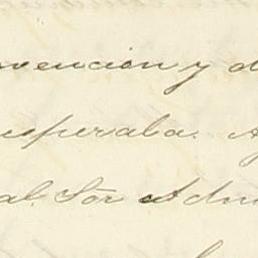 vencion y d
esperaba. A
al Sor Adm